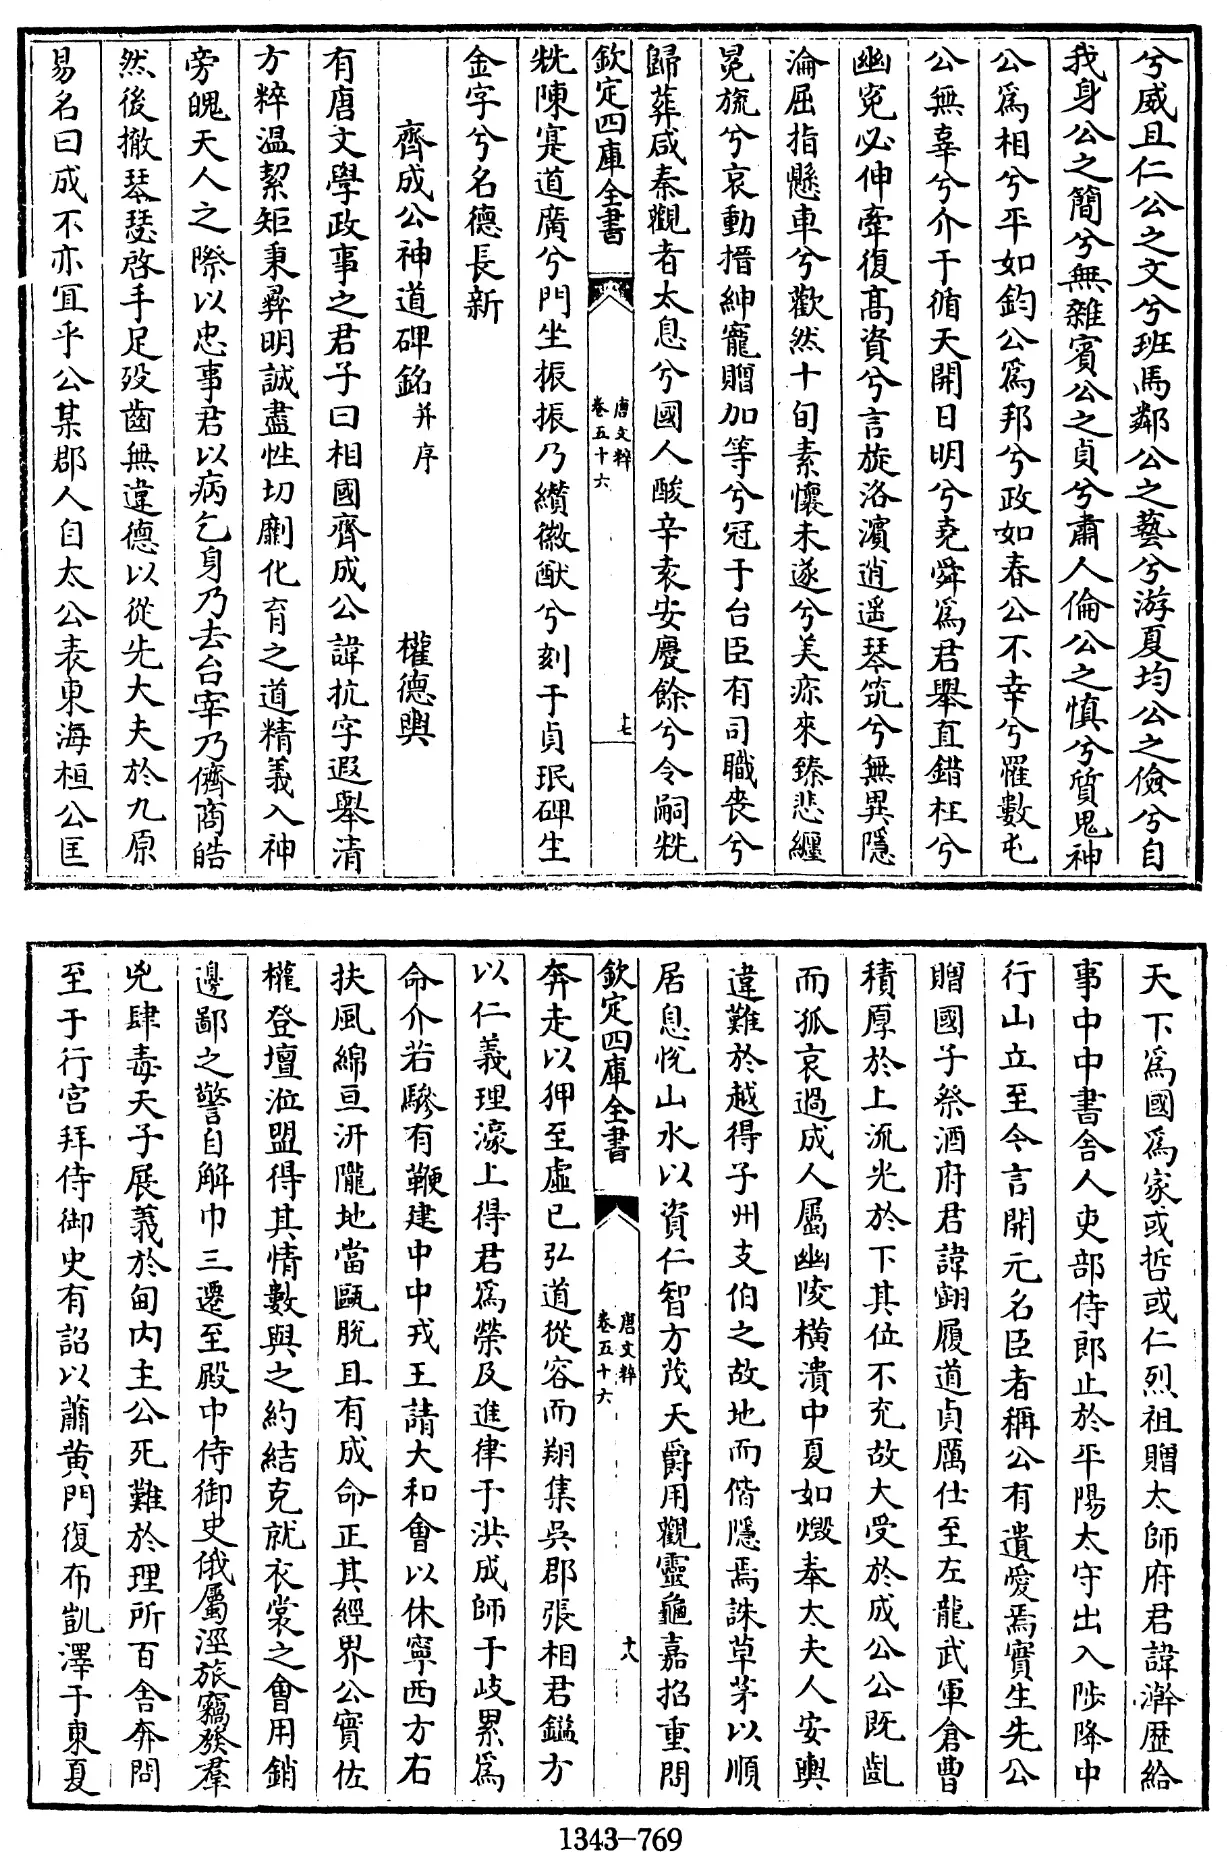 兮威且仁公之文兮班馬鄰公之藝兮游夏均公之儉兮自
我身公之簡兮無雜賓公之貞兮肅人倫公之慎兮質鬼神
公爲相兮平如鈞公爲邦兮政如春公不幸兮罹數屯
公無辜兮介于循天開日明兮堯舜爲君舉直錯枉兮
幽寃必伸牽復高資兮言旋洛濱逍遥琴筑兮無異隱
淪屈指懸車兮歡然十旬素懷未遂兮美疢來臻悲纏
冕旒兮哀動搢紳寵贈加等兮冠于台臣有司職喪兮
歸葬咸秦觀者太息兮國人酸辛袁安慶餘兮令嗣兟
欽定四庫全書
唐文粹
卷五十六
十七
兟陳寔道廣兮門生振振乃纘徽猷兮刻于貞珉碑生
金字兮名德長新
齊成公神道碑銘并序 權德輿
有唐文學政事之君子曰相國齊成公諱抗字遐舉清
方粹温絜矩秉彛明誠盡性切劘化育之道精義入神
旁魄天人之際以忠事君以病乞身乃去台宰乃儕商皓
然後撤琴瑟啓手足殁齒無違德以從先大夫於九原
易名曰成不亦宜乎公某郡人自太公表東海桓公匡
天下爲國爲家或哲或仁烈祖贈太師府君諱澣歴給
事中中書舍人吏部侍郎止於平陽太守出入陟降中
行山立至今言開元名臣者稱公有遺愛焉實生先公
贈國子祭酒府君諱翃履道貞厲仕至左龍武軍倉曹
積厚於上流光於下其位不充故大受於成公公既齔
而孤哀過成人屬幽陵橫潰中夏如燬奉太夫人安輿
違難於越得子州支伯之故地而偕隱焉誅草茅以順
居息悅山水以資仁智方茂天爵用觀靈龜嘉招重問
欽定四庫全書
唐文粹
卷五十六
十八
奔走以狎至虛已弘道從容而翔集吳郡張相君鎰方
以仁義理濠上得君爲榮及進律于洪成師于岐累爲
命介若驂有鞭建中中戎王請大和會以休寧西方右
扶風綿亘汧隴地當甌脫且有成命正其經界公實佐
權登壇涖盟得其情數與之約結克就衣裳之會用銷
邊鄙之警自解巾三遷至殿中侍御史俄屬涇旅竊發羣
兇肆毒天子展義於甸内主公死難於理所百舍奔問
至于行宮拜侍御史有詔以蕭黄門復布凱澤于東夏
1343-769